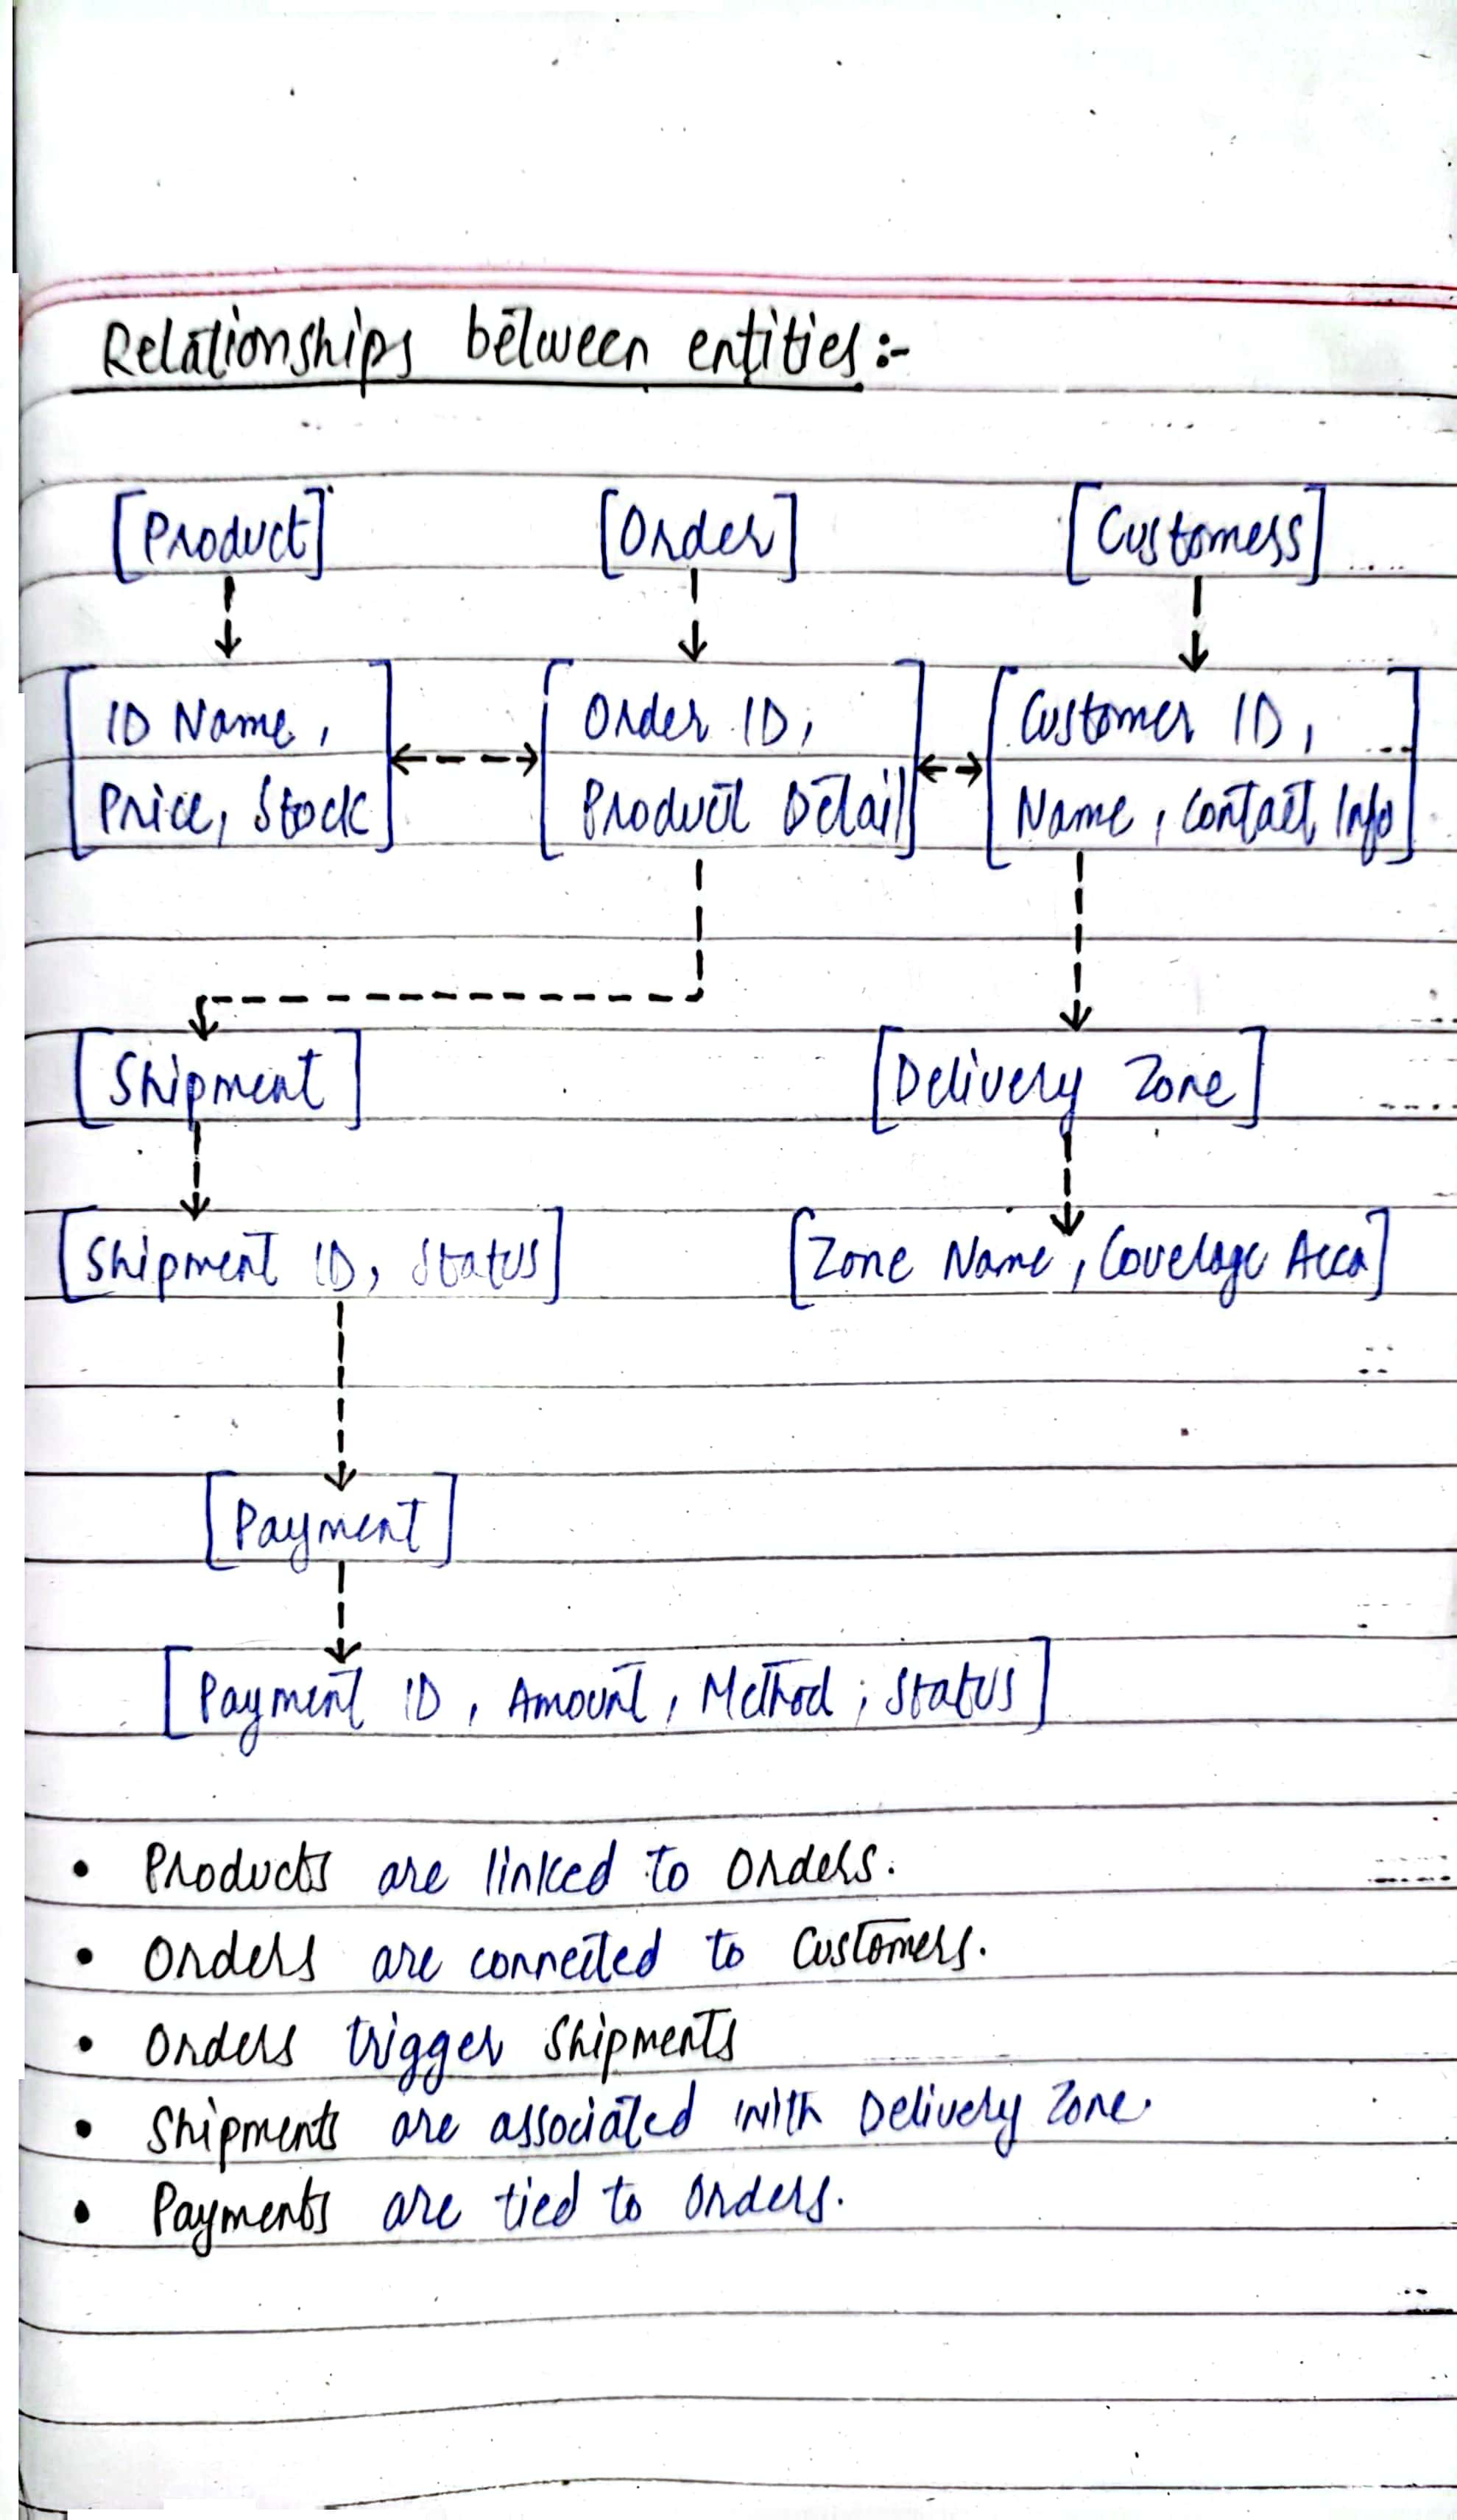 Relationships between entities:-
[Product] [Order] [Customers]
ID Name, Order ID, Customer ID,
Price, Stock Product Detail Name, Contact Info
[Shipment] [Delivery Zone]
[Shipment ID, Status] [Zone Name, Coverage Area]
[Payment]
[Payment ID, Amount, Method, Status]
• Products are linked to Orders.
• Orders are connected to Customers.
• Orders trigger Shipments
• Shipments are associated with Delivery Zone.
• Payments are tied to Orders.